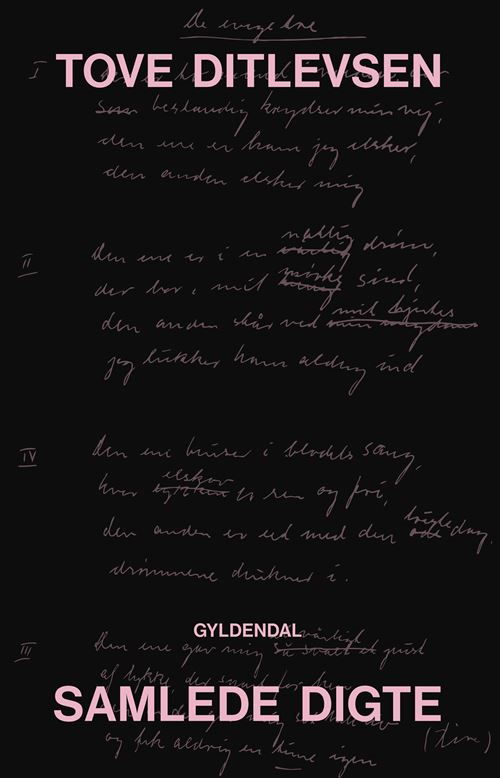 De evige tre
I
TOVE DITLEVSEN
som bestandig krydser min vej,
den ene er ham jeg elsker,
den anden elsker mig
II
Den ene er i en natlig drøm,
der bor i mit mørke sind,
den anden står ved mit hjertes
jeg lukker ham aldrig ind
IV
Den ene bruser i blodets sang,
hvor elskov er ren og fri,
den anden er eet med den dag,
drømmene drukner i.
GYLDENDAL
III
Den ene gav mig pust
af lykke, der snart
SAMLEDE DIGTE
og fik aldrig en time igen
(time)